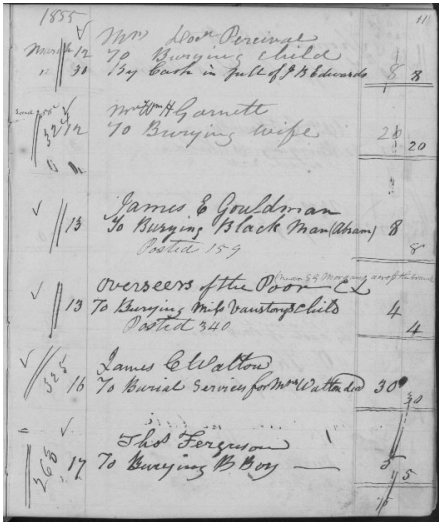 1855 11
Mrs Doct Percival
March 12 To Burying Child
" 31 By Cash in full of J B Edwards 8 8
Mr Wm H Garnett
12 To Burying wife 20
20
James E Gouldman
13 To Burying Black Man (Abram) 8
Posted 159 8
Overseers of the Poor
13 To Burying Miss Child 4
Posted 340 4
James C Watton
325
16 To Burial Services for Mrs Watton 30
30
Thos Ferguson
265
17 To Burying B Boy — 5
5